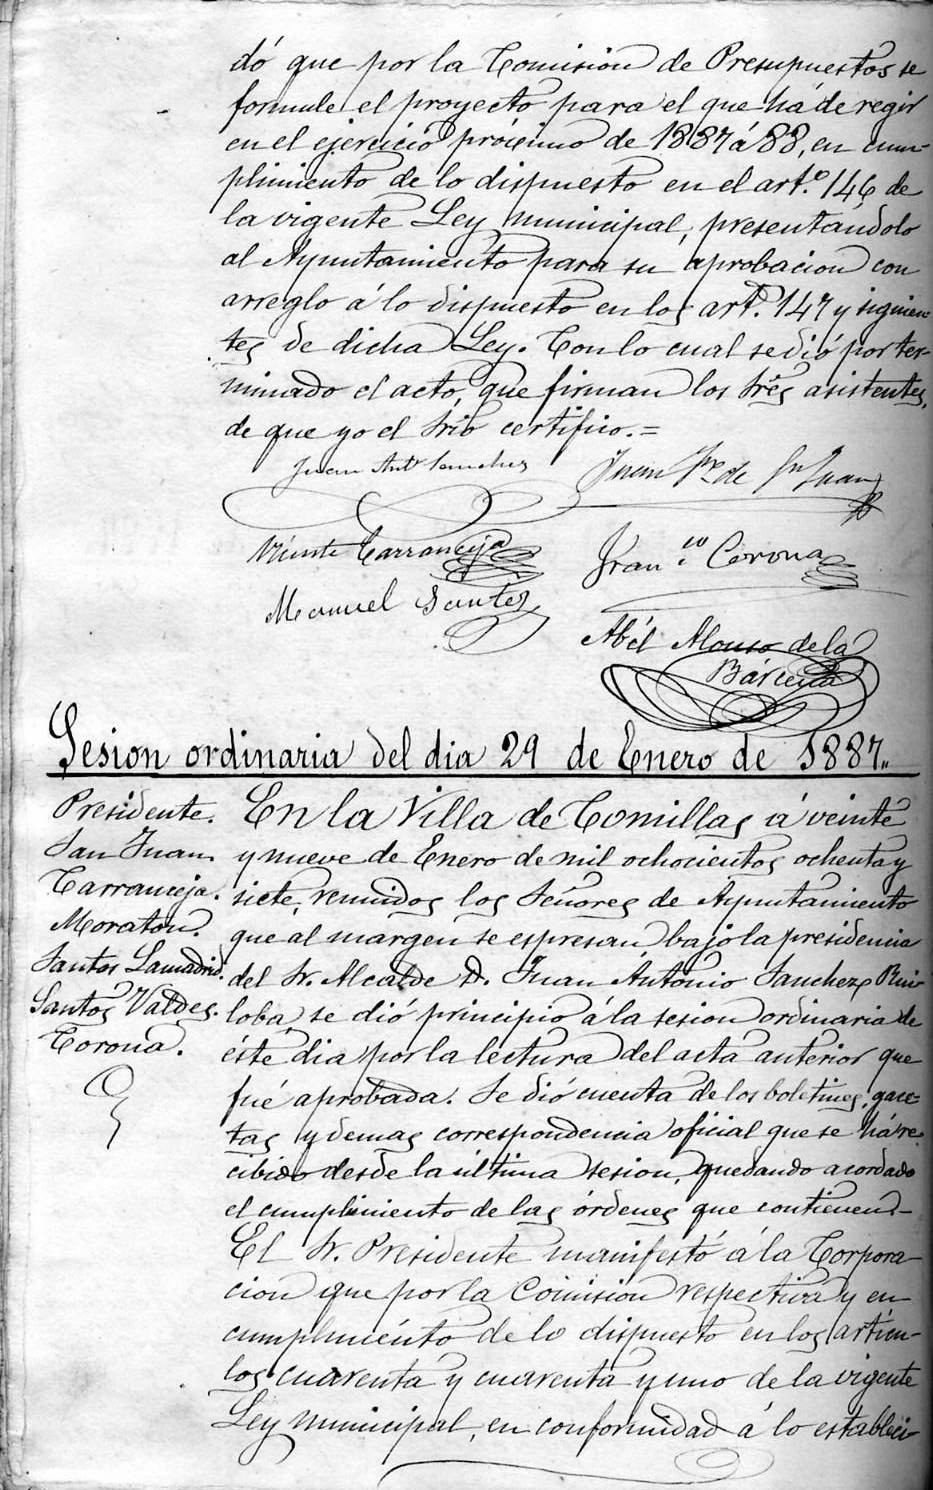 dó que por la Comision de Presupuestos se
formule el proyecto para el que há de regir
en el ejercicio próximo de 1887 á 88, en cum-
plimiento de lo dispuesto en el art.º 146 de
la vigente Ley municipal, presentándolo
al Ayuntamiento para su aprobacion con
arreglo á lo dispuesto en los art.º 147 y siguien-
tes de dicha Ley. Con lo cual se dió por ter-
minado el acto, que firman los Srés asistentes,
de que yo el Srio certifico.=
Juan Antº Sanchez
Juan Pre de Sn Juan
Vicente Carranceja
Fran.co Corona
Manuel Santos
Abél Alonso de la
Bárcena
Sesion ordinaria del dia 29 de Enero de 1887.
Presidente.
San Juan
Carranceja.
Moraton.
Santos Lamadrid.
Santos Valdes.
Corona.
En la Villa de Comillas á veinte
y nueve de Enero de mil ochocientos ochenta y
siete, reunidos los Señores de Ayuntamiento
que al margen se espresan bajo la presidencia
del Sr. Alcalde D. Juan António Sanchez Rui-
loba, se dió principio á la sesion ordinaria de
éste dia por la lectura del acta anterior que
fué aprobada. Se dió cuenta de los boletines, gace-
tas y demas correspondencia oficial que se há re-
cibido desde la última sesion, quedando acordado
el cumplimiento de las órdenes que contienen-
El Sr. Presidente manifestó á la Corpora-
cion que por la Comision respectiva y en
cumplimiento de lo dispuesto en los artícu-
los cuarenta y cuarenta y uno de la vigente
Ley municipal, en conformidad á lo estableci-